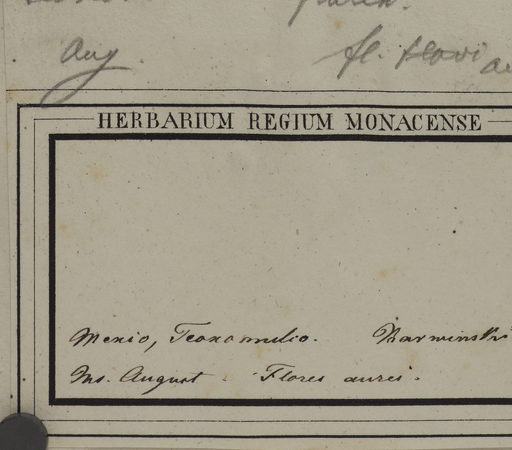 Aug. fl. flavi
HERBARIUM REGIUM MONACENSE
Mexio, Teoxomulco. Karwinski
Ms. August. Flores aurei.